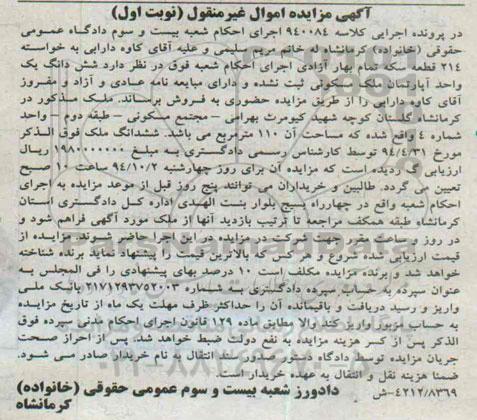 آگهی مزایده اموال غیرمنقول (نوبت اول)
در پرونده اجرایی کلاسه ۹۴۰۰۸۴ اجرای احکام شعبه بیست و سوم دادگاه عمومی
حقوقی (خانواده) کرمانشاه له خانم مریم سلیمی و علیه آقای کاوه دارابی به خواسته
۲۱۴ قطعه سکه تمام بهار آزادی اجرای احکام شعبه فوق در نظر دارد شش دانگ یک
واحد آپارتمان ملک مسکونی ثبت نشده و دارای مبایعه نامه عادی و آزاد و مفروز
آقای کاوه دارابی را از طریق مزایده حضوری به فروش برساند. ملک مذکور در
کرمانشاه گلستان کوچه شهید کیومرث بهرامی – مجتمع مسکونی – طبقه دوم – واحد
شماره ۴ واقع شده که مساحت آن ۱۱۰ مترمربع می باشد. ششدانگ ملک فوق الذکر
مورخ ۹۴/۴/۳۱ توسط کارشناس رسمی دادگستری به مبلغ ۱۹۸۰۰۰۰۰۰۰ ریال
ارزیابی گردیده است که مزایده آن برای روز چهارشنبه ۹۴/۱۰/۲ ساعت ۱۰ صبح
تعیین می گردد. طالبین و خریداران می توانند پنج روز قبل از موعد مزایده به اجرای
احکام شعبه واقع در چهارراه بسیج بلوار بنت الهدی اداره کل دادگستری استان
کرمانشاه طبقه همکف مراجعه تا ترتیب بازدید آنها از ملک مورد آگهی فراهم شود و
در روز و ساعت مقرر جهت شرکت در مزایده در این اجرا حاضر شوند. مزایده از
قیمت ارزیابی شده شروع و هر کس که بالاترین قیمت را پیشنهاد نماید برنده شناخته
خواهد شد و برنده مزایده مکلف است ۱۰ درصد بهای پیشنهادی را فی المجلس به
عنوان سپرده به حساب سپرده دادگستری به شماره ۲۱۷۱۲۹۳۷۵۲۰۰۳ بانک ملی
واریز و رسید دریافت و باقیمانده آن را حداکثر ظرف مهلت یک ماه از تاریخ مزایده
به حساب مزبور واریز کند والا مطابق ماده ۱۲۹ قانون اجرای احکام مدنی سپرده فوق
الذکر پس از کسر هزینه مزایده به نفع دولت ضبط خواهد شد. پس از احراز صحت
جریان مزایده توسط دادگاه دستور صدور سند انتقال به نام خریدار صادر می شود.
ضمنا هزینه نقل و انتقال به عهده خریدار است.
۴۲۱۲/۸۳۶۹–ش دادورز شعبه بیست و سوم عمومی حقوقی (خانواده)
کرمانشاه